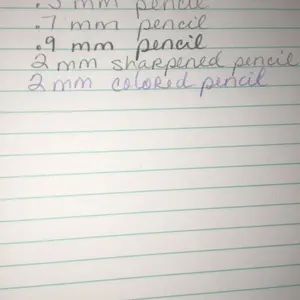 mm pencil
.7 mm pencil
.9 mm pencil
2 mm sharpened pencil
2 mm colored pencil